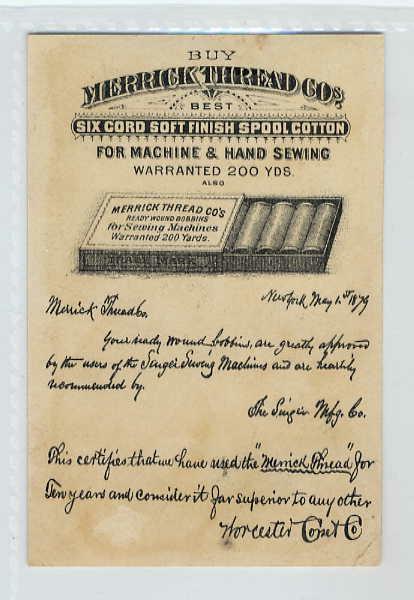 BUY
MERRICK THREAD CO'S
BEST
SIX CORD SOFT FINISH SPOOL COTTON
FOR MACHINE & HAND SEWING
WARRANTED 200 YDS.
ALSO
MERRICK THREAD CO'S
READY WOUND BOBBINS
for Sewing Machines
Warranted 200 Yards.
TRADE MARK
New York May 1.st 1879
Merrick Thread Co.
Your ready wound bobbins, are greatly approved
by the users of the Singer Sewing Machines and are heartily
recommended by.
The Singer Mfg. Co.
This certifies that we have used the "Merrick Thread" for
Ten years and consider it far superior to any other
Worcester Corset Co